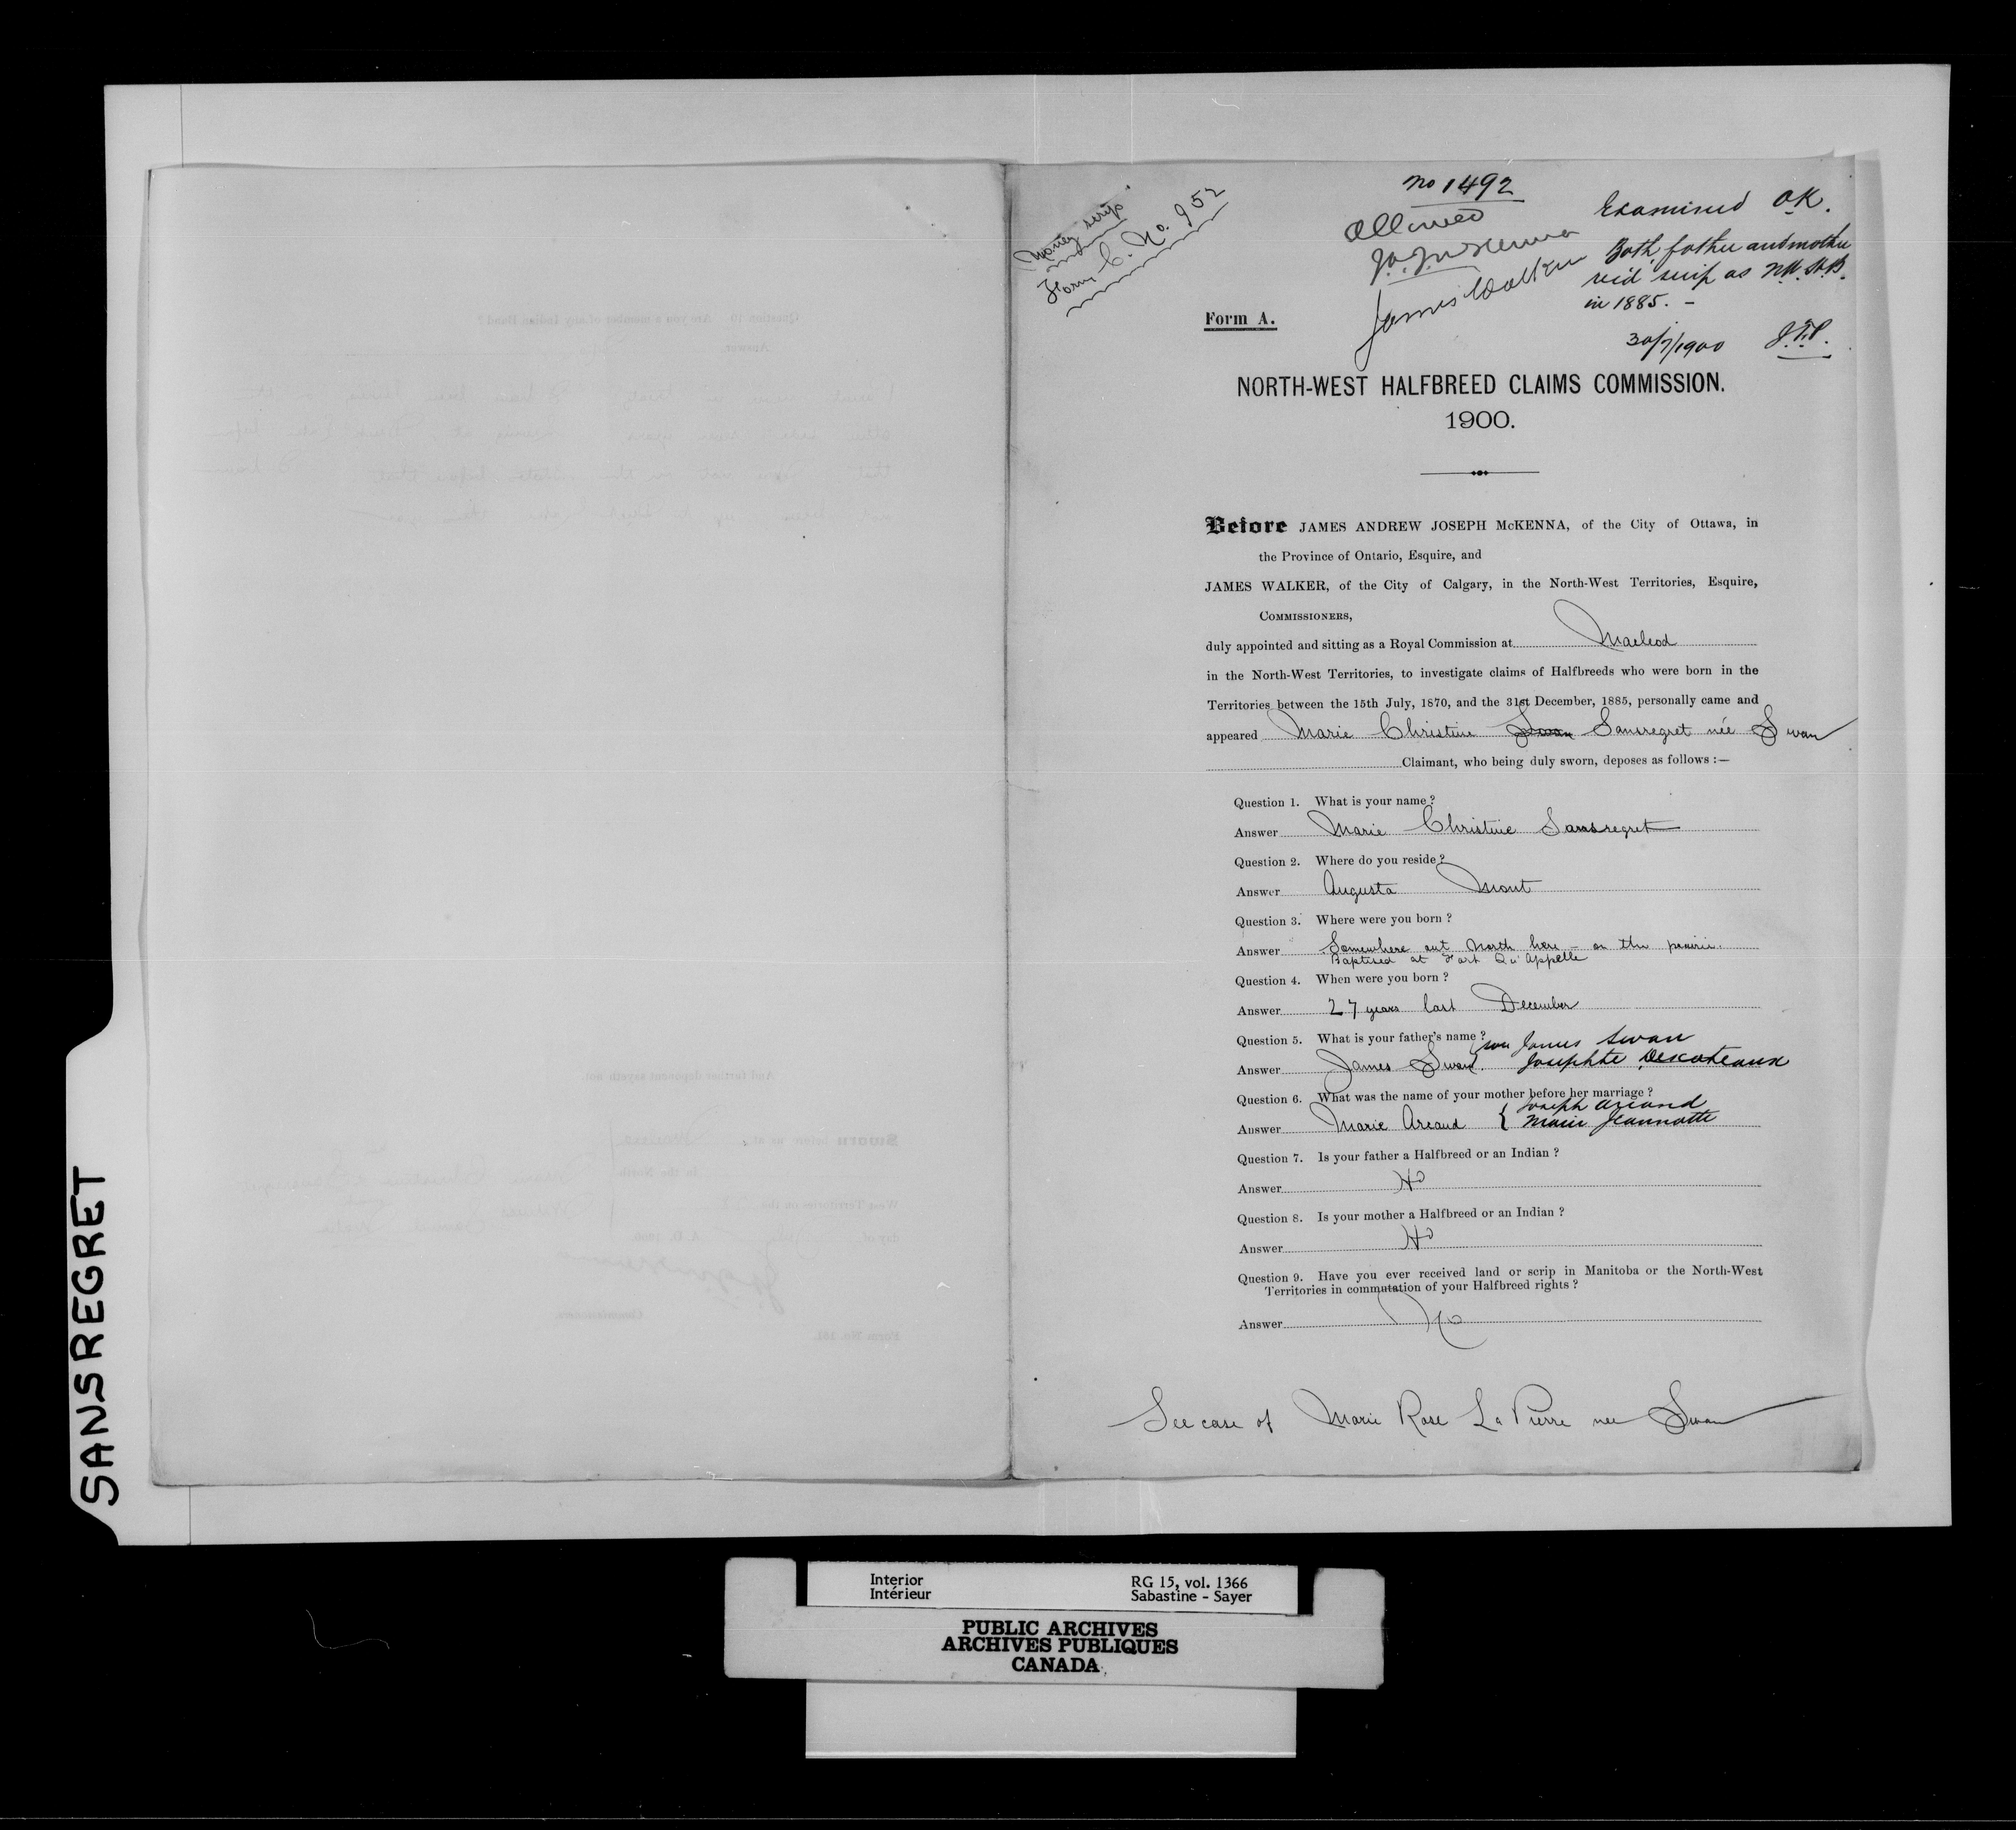 SANSREGRET
Money scrip
Form C. No. 952
No 1492
Allowed
J.A.J. McKenna
James Walker
Examined O.K.
Both father and mother
rec'd scrip as N.W.H.B.
in 1885. -
30/7/1900 J.T.P.
Form A.
NORTH-WEST HALFBREED CLAIMS COMMISSION.
1900.
Before JAMES ANDREW JOSEPH McKENNA, of the City of Ottawa, in
the Province of Ontario, Esquire, and
JAMES WALKER, of the City of Calgary, in the North-West Territories, Esquire,
COMMISSIONERS,
duly appointed and sitting as a Royal Commission at Macleod
in the North-West Territories, to investigate claims of Halfbreeds who were born in the
Territories between the 15th July, 1870, and the 31st December, 1885, personally came and
appeared Marie Christine Swan Sansregret née Swan
Claimant, who being duly sworn, deposes as follows :—
Question 1. What is your name ?
Answer Marie Christine Sansregret
Question 2. Where do you reside ?
Answer Augusta Mont
Question 3. Where were you born ?
Answer Somewhere out North here - on the prairie.
Baptised at Fort Qu'Appelle
Question 4. When were you born ?
Answer 27 years last December
Question 5. What is your father's name ?
James Swan
Answer James Swan. Josephte Descoteaux
Question 6. What was the name of your mother before her marriage ?
Joseph Arcand
Answer Marie Arcand { Marie Jeannotte
Question 7. Is your father a Halfbreed or an Indian ?
Answer H
Question 8. Is your mother a Halfbreed or an Indian ?
Answer H
Question 9. Have you ever received land or scrip in Manitoba or the North-West
Territories in commutation of your Halfbreed rights ?
Answer No
See case of Marie Rose La Pierre nee Swan
Interior
Intérieur
RG 15, vol. 1366
Sabastine - Sayer
PUBLIC ARCHIVES
ARCHIVES PUBLIQUES
CANADA